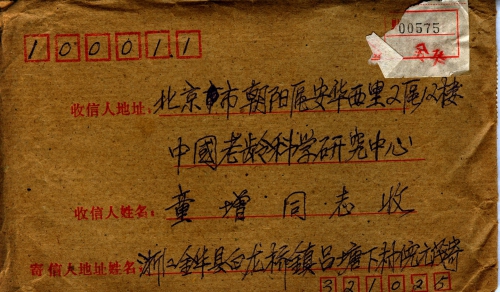 00575
100011
收信人地址：北京市朝阳區安华西里2區12楼
中國老龄科学研究中心
收信人姓名：童增同志收
寄信人地址姓名：浙江金华县白龙桥鎮吕塘下村倪
321025